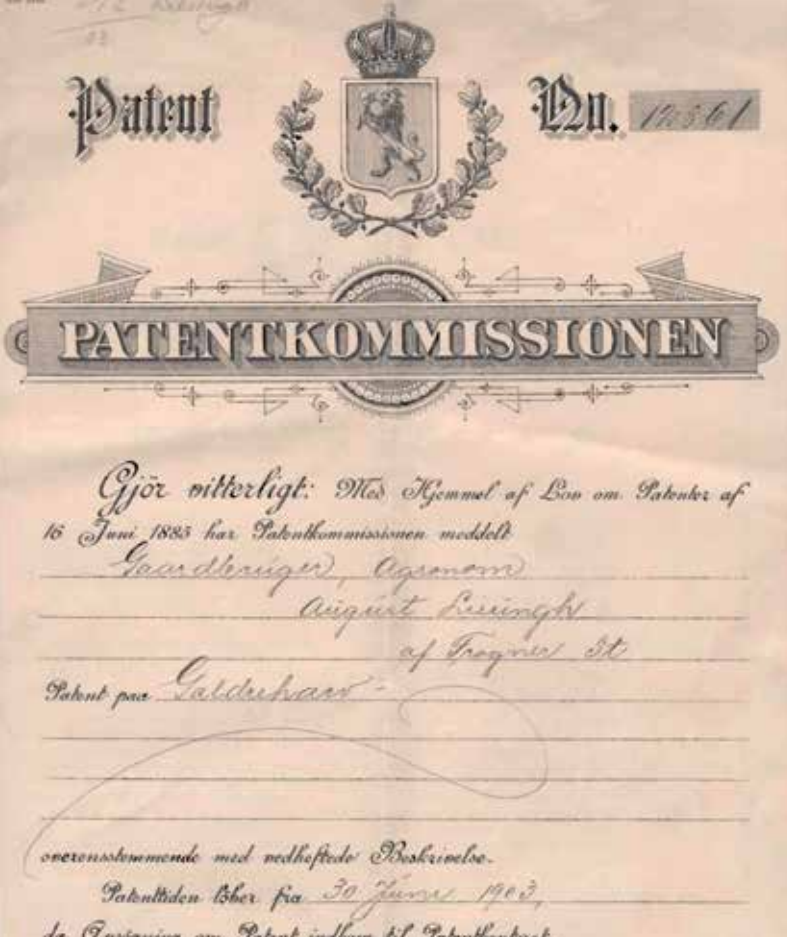 Patent No.
PATENTKOMMISSIONEN
Gjör vitterligt: Med Hjemmel af Lov om Patenter af
16 Juni 1885 har Patentkommissionen meddelt
Gaardbruger, Agronom
August
af Trogner St
Patent paa
overensstemmende med vedheftede Beskrivelse.
Patenttiden löber fra 30 Juni 1903,
da Ansögning om Patent indkom til Patentkontoret